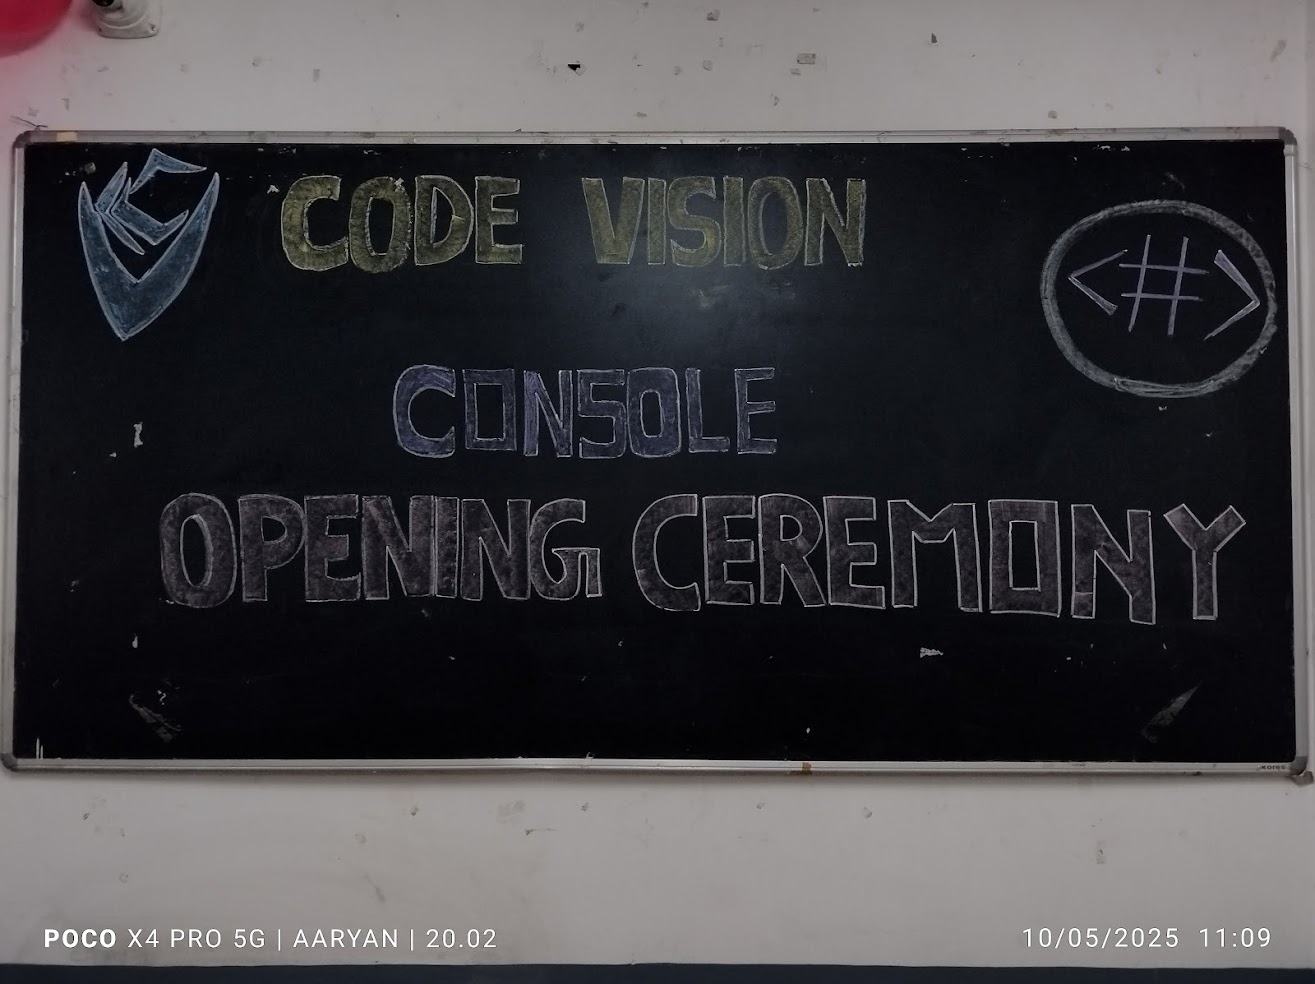 CODE VISION
<#>
CONSOLE
OPENING CEREMONY
POCO X4 PRO 5G | AARYAN | 20.02
10/05/2025 11:09